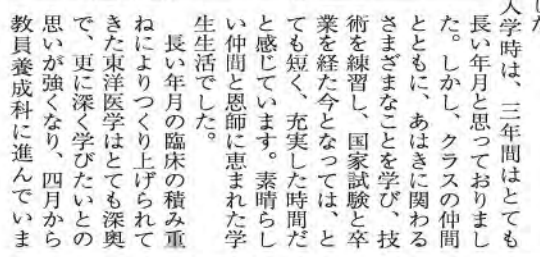 した
入学時は、三年間はとても
長い年月と思っておりまし
た。しかし、クラスの仲間
とともに、あはきに関わる
さまざまなことを学び、技
術を練習し、国家試験と卒
業を経た今となっては、と
ても短く、充実した時間だ
と感じています。素晴らし
い仲間と恩師に恵まれた学
生生活でした。
長い年月の臨床の積み重
ねによりつくり上げられて
きた東洋医学はとても深奥
で、更に深く学びたいとの
思いが強くなり、四月から
教員養成科に進んでいま